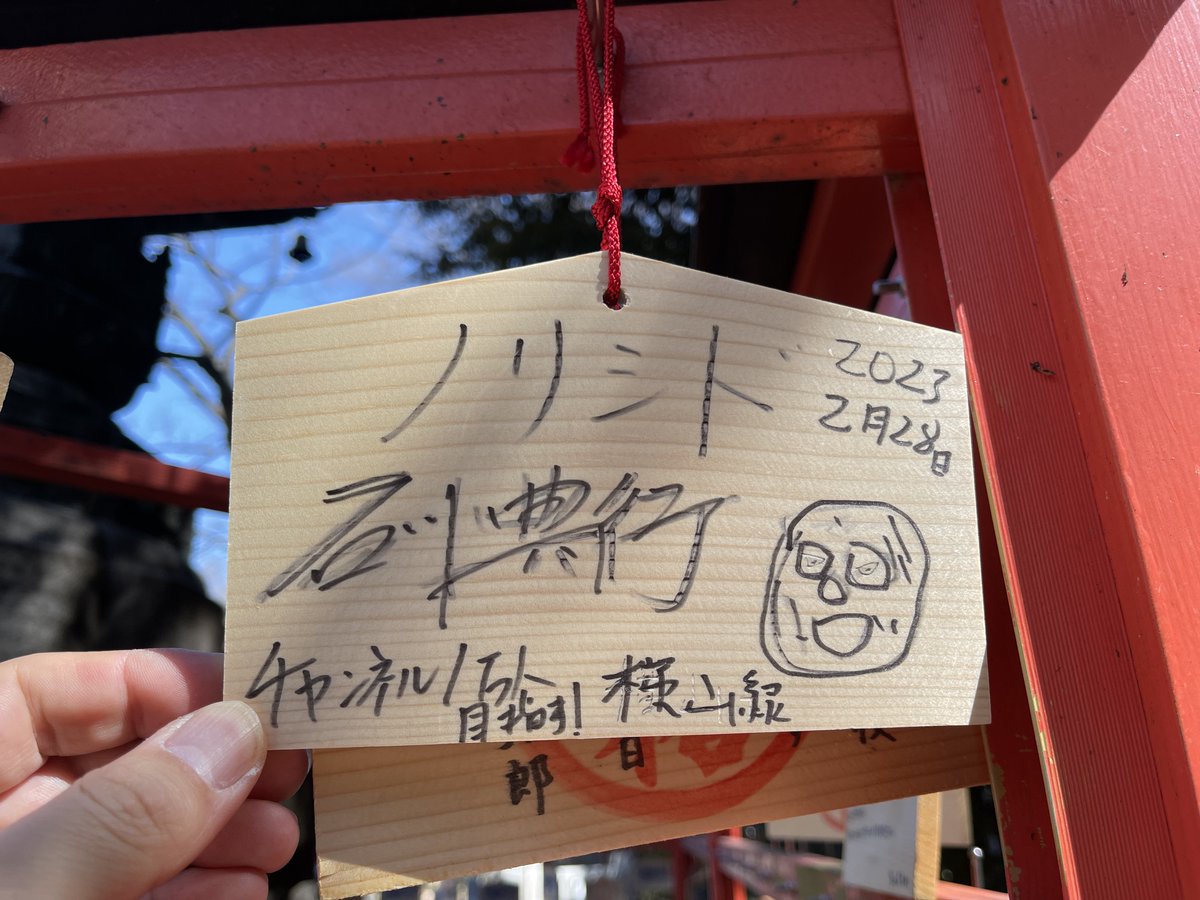 ノリミド
2023
2月28日
石川典行
チャンネル1万人
目指す!
横山緑
郎
日